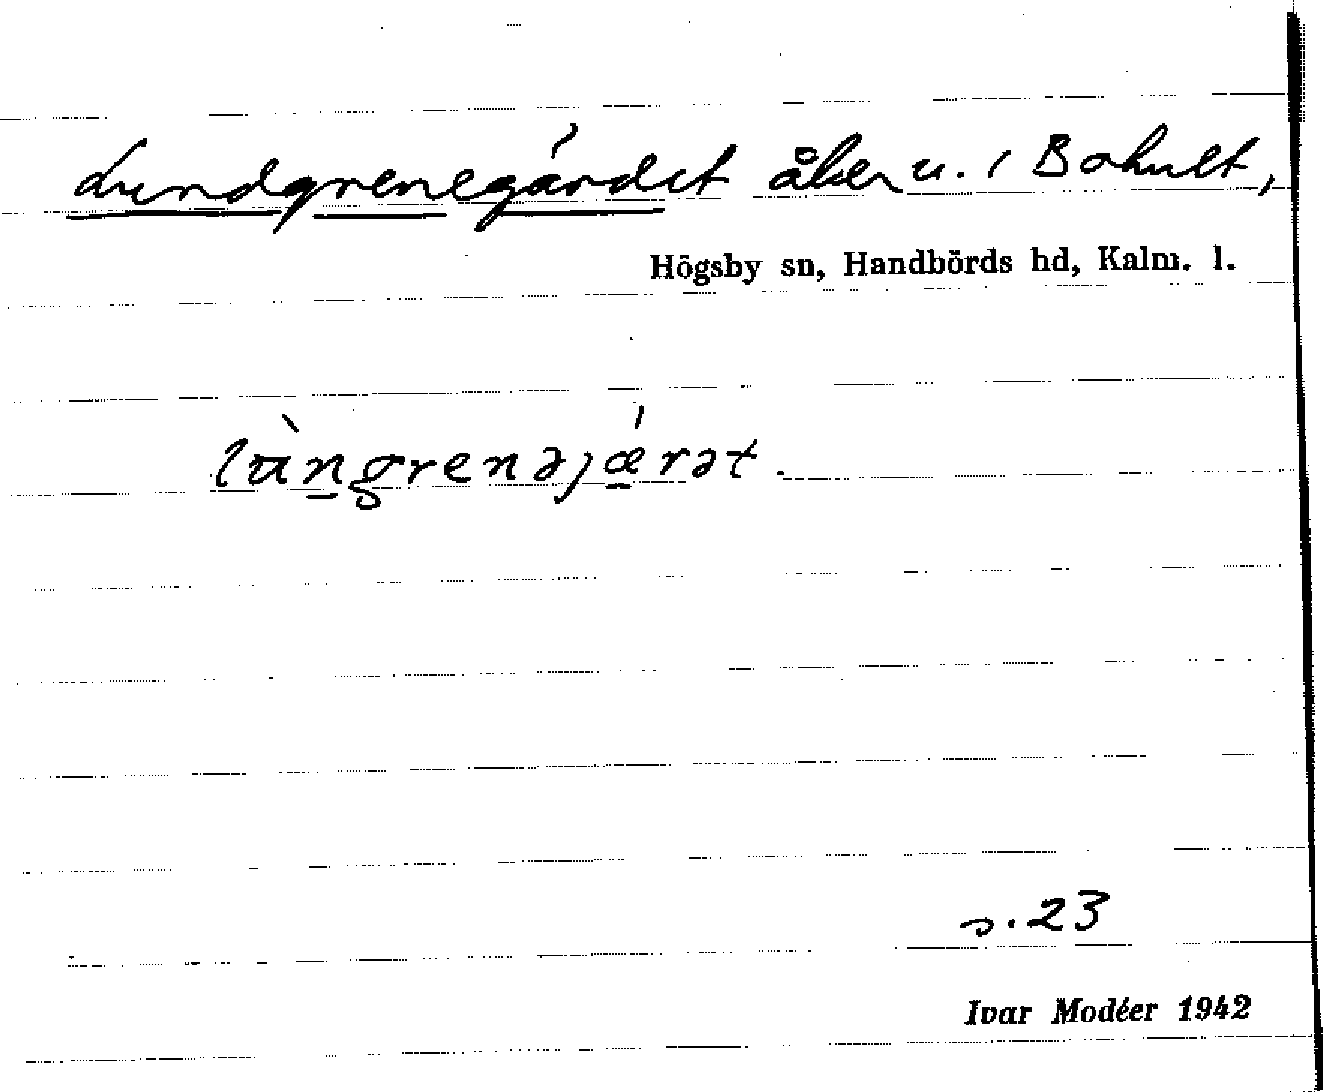 Lundgrenegärdet åker u. i Bohult,
Högsby sn, Handbörds hd, Kalm. l.
lùngrenəjǽrət.
s. 23
Ivar Modéer 1942